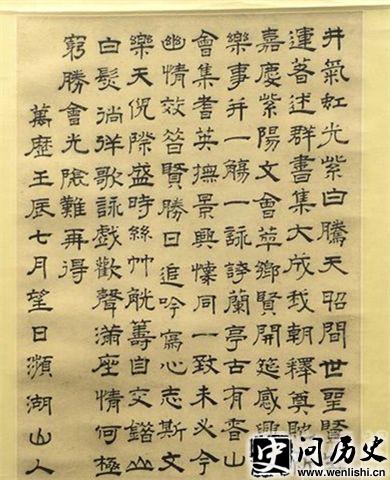 井氣虹光紫白騰天昭間世聖賢
運著述群書集大成我朝釋奠
嘉慶紫陽文會萃鄉賢開筵感興
樂事并一觴一詠誇蘭亭古有香山
會集耆英撫景興懷同一致未必今
幽情效昔賢勝日追吟寫心志斯文
樂天倪際盛時絲竹觥籌自交錯山
白髮徜徉歌詠戲歡聲滿座情何極
窮勝會光陰難再得
萬歷壬辰七月望日瀕湖山人
史 问历史
www.wenlishi.cn